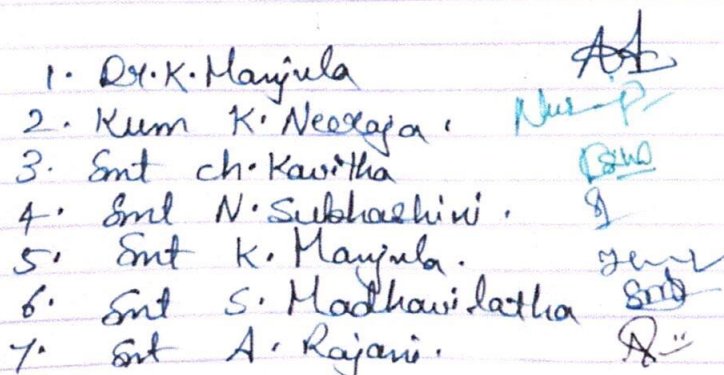 1. Dr. K. Manjula
2. Kum K. Neeraja.
3. Smt ch. Kavitha
4. Smt N. Subhashini.
5. Smt K. Manjula.
6. Smt S. Madhavilatha
7. Smt A. Rajani.